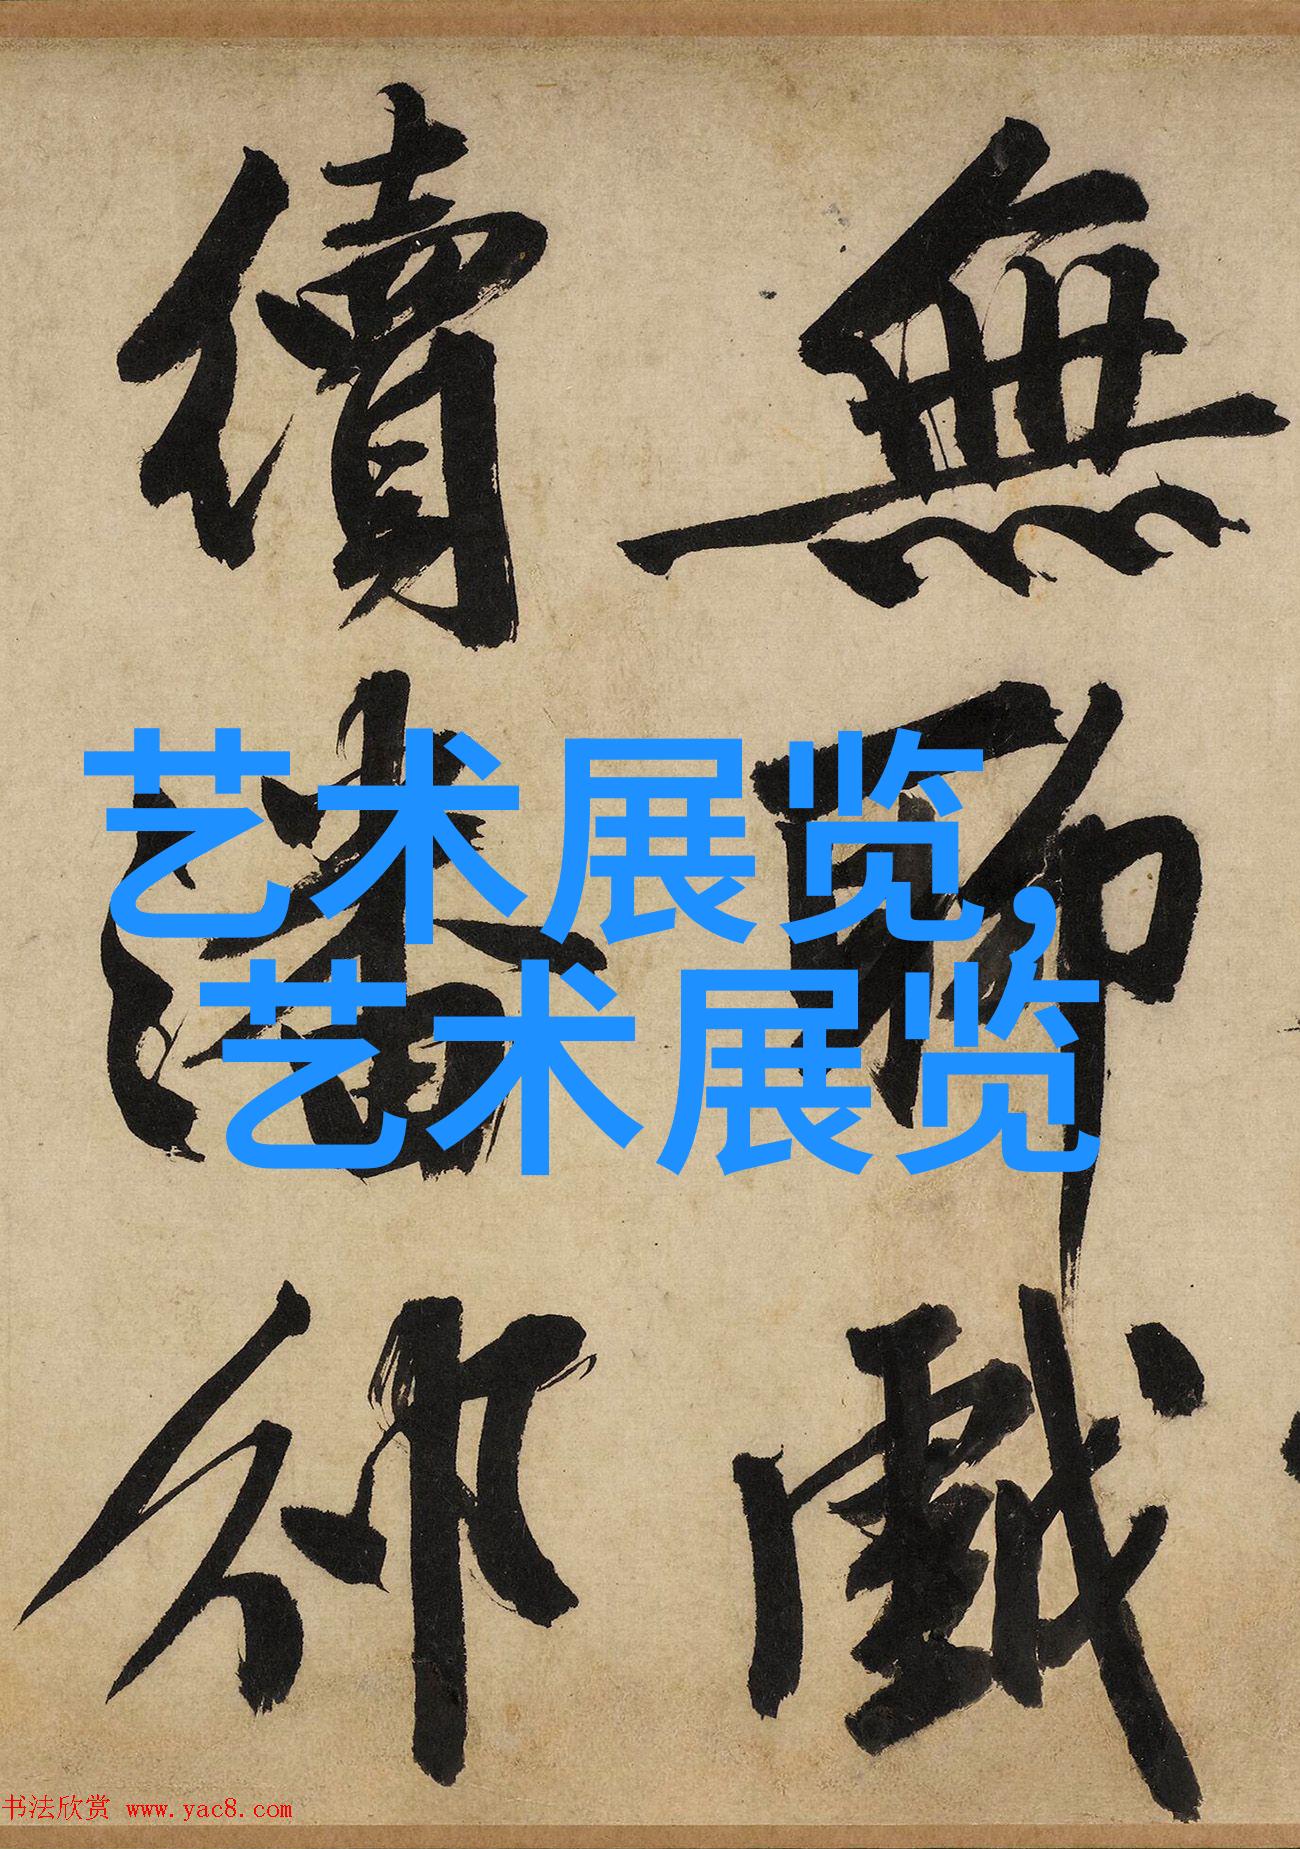 無聊戲
續潘邠
艺术展览,
艺术展览
书法欣赏 www.yac8.com